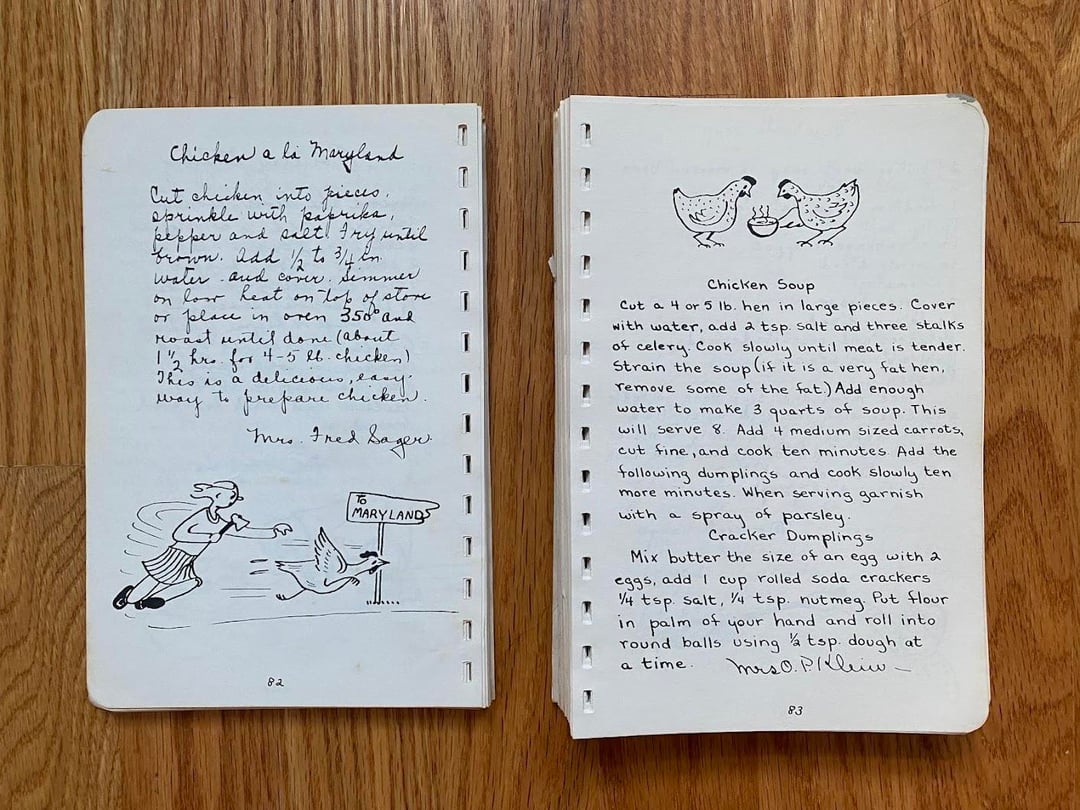 Chicken a la Maryland
Cut chicken into pieces,
sprinkle with paprika,
pepper and salt. Fry until
brown. Add 1/2 to 3/4 in.
water and cover. Simmer
on low heat on top of stove
or place in oven 350° and
roast until done (about
1 1/2 hrs. for 4-5 lb. chicken)
This is a delicious, easy
way to prepare chicken.
Mrs. Fred Sager.
TO
MARYLAND
82
Chicken Soup
Cut a 4 or 5 lb. hen in large pieces. Cover
with water, add 2 tsp. salt and three stalks
of celery. Cook slowly until meat is tender.
Strain the soup (if it is a very fat hen,
remove some of the fat.) Add enough
water to make 3 quarts of soup. This
will serve 8. Add 4 medium sized carrots,
cut fine, and cook ten minutes. Add the
following dumplings and cook slowly ten
more minutes. When serving garnish
with a spray of parsley.
Cracker Dumplings
Mix butter the size of an egg with 2
eggs, add 1 cup rolled soda crackers
1/4 tsp. salt, 1/4 tsp. nutmeg. Put flour
in palm of your hand and roll into
round balls using 1/2 tsp. dough at
a time. Mrs O. P. Klein
83